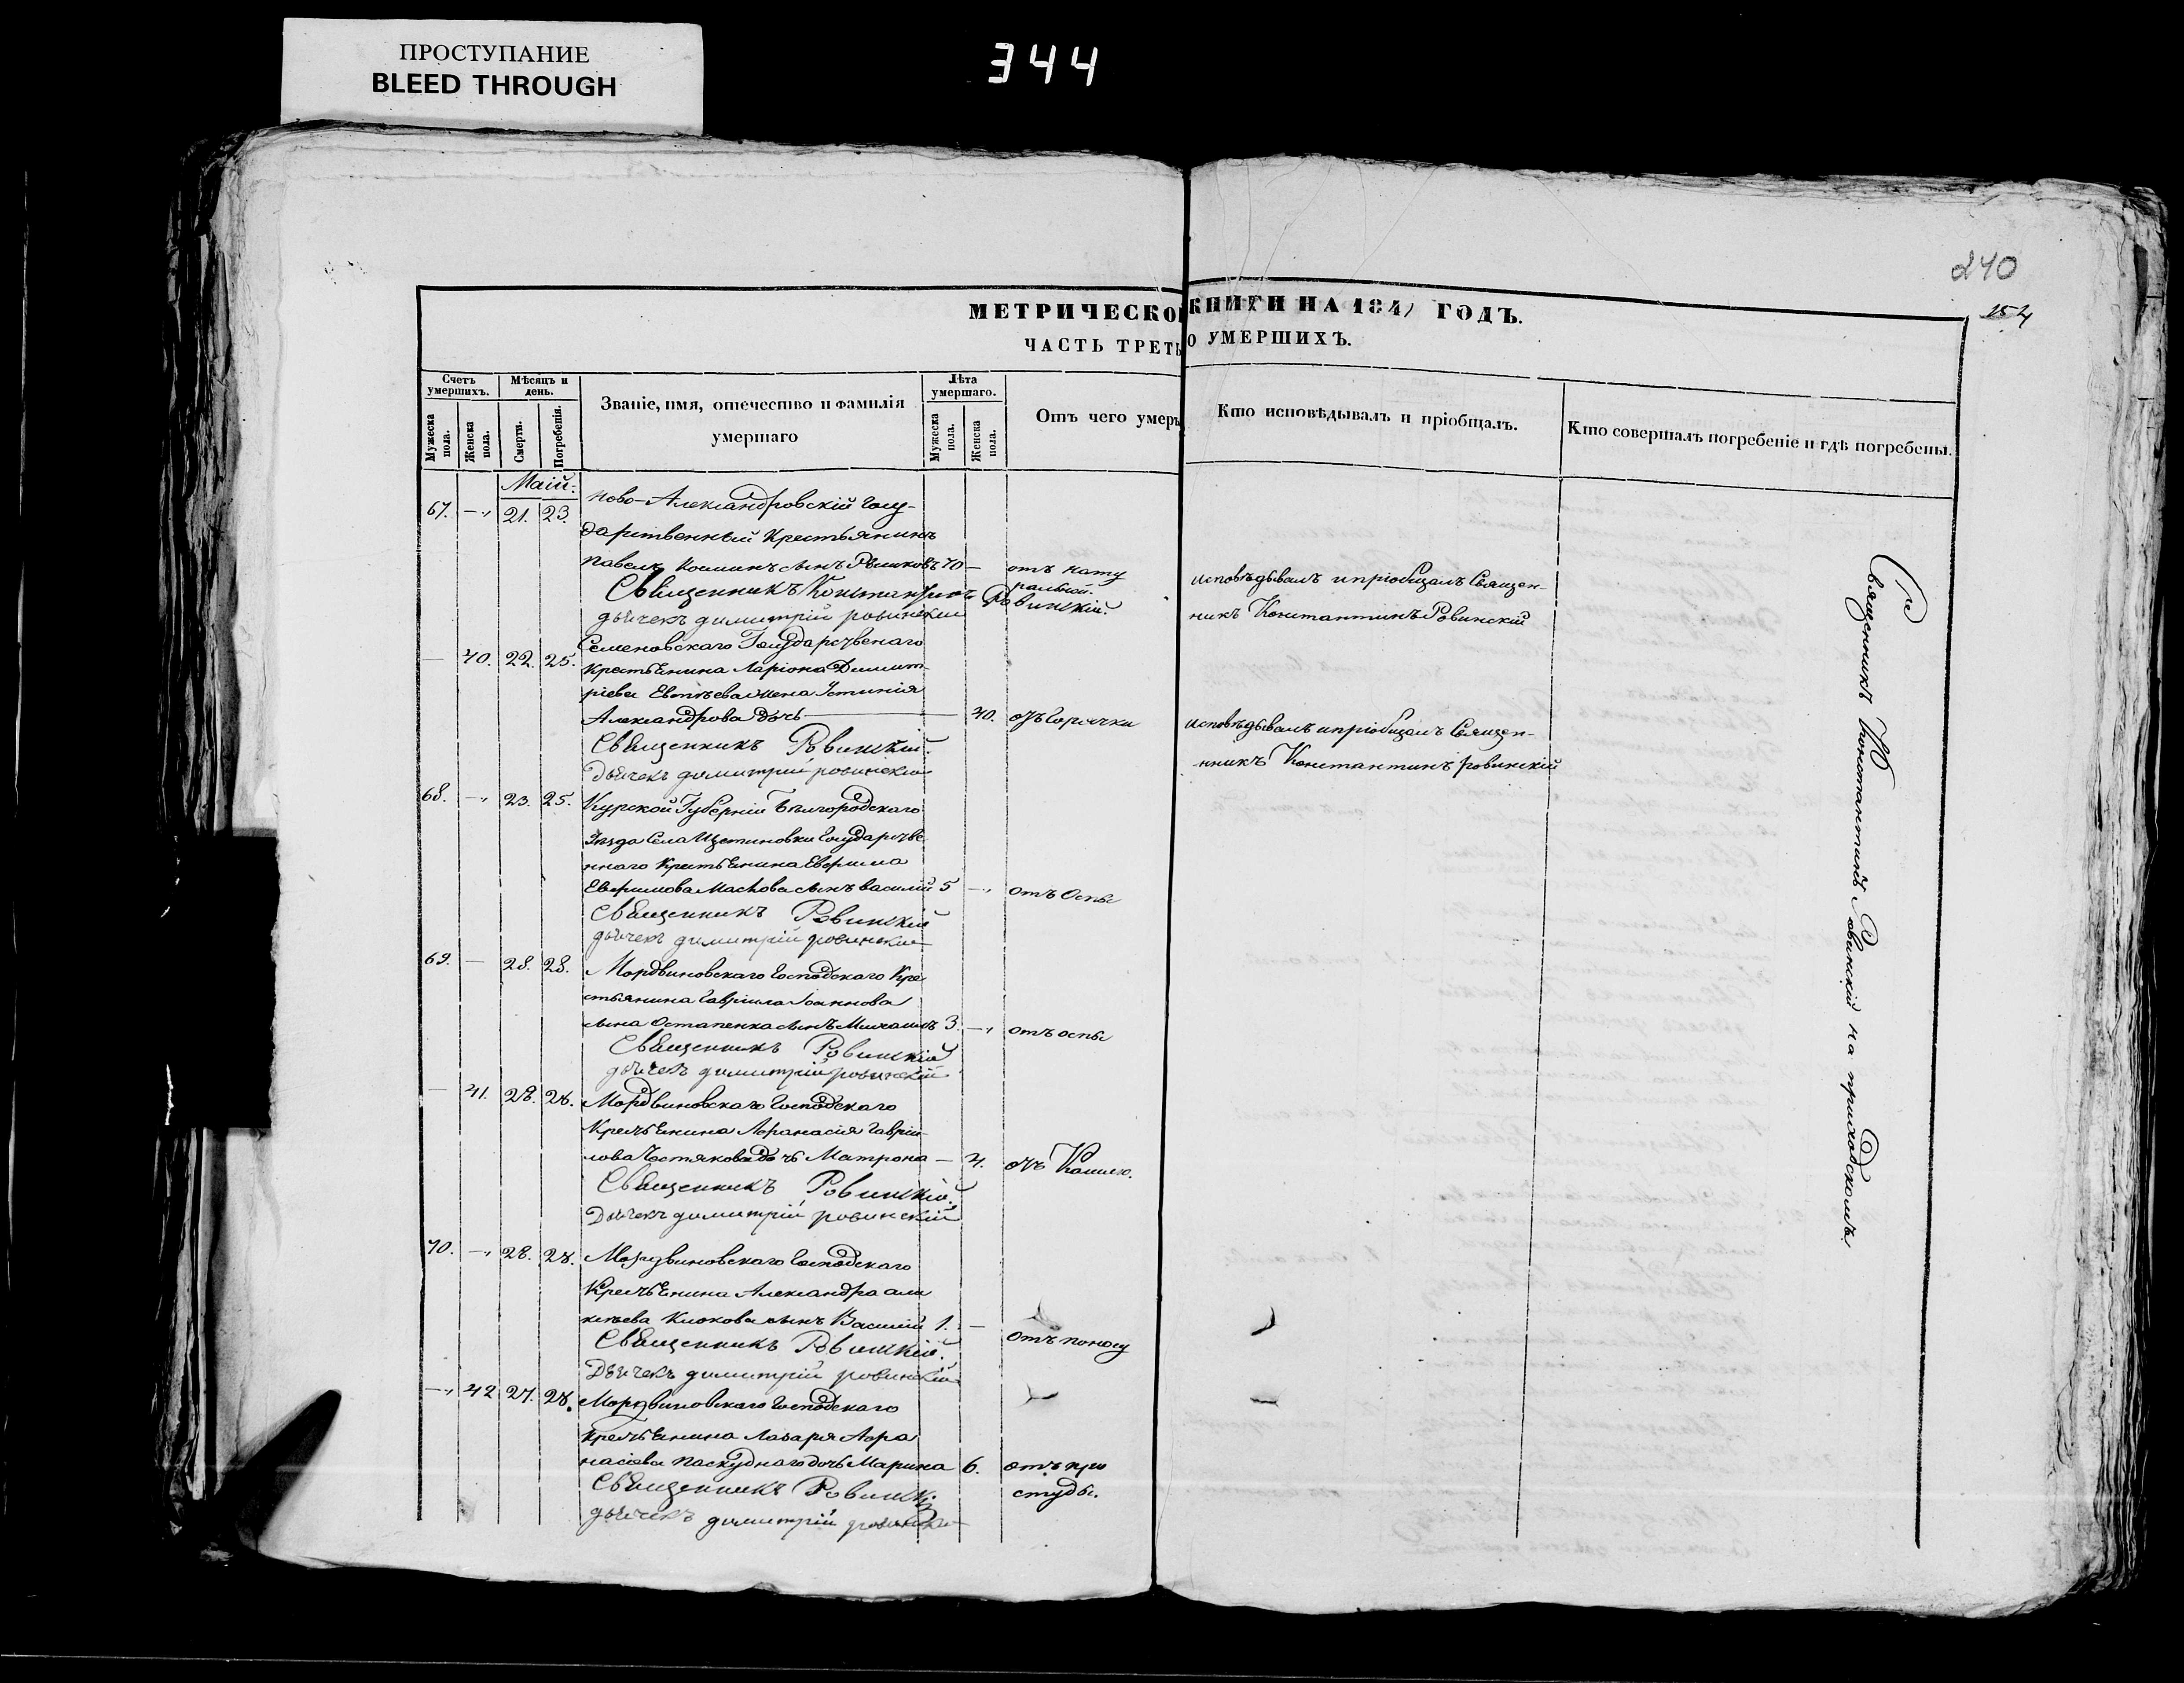 ПРОСТУПАНИЕ
BLEED THROUGH
344
240
МЕТРИЧЕСКО КНИГИ НА 184 ГОДЪ.
ЧАСТЬ ТРЕТЬ О УМЕРШИХЪ.
Счетъ умершихъ.
Мужеска пола.
Женска пола.
Мѣсяцъ и день.
Смерти.
Погребенія.
Званіе, имя, отечество и фамилія умершаго
Лѣта умершаго.
Мужеска пола.
Женска пола.
Отъ чего умеръ
Кто исповѣдывалъ и пріобщалъ.
Кто совершалъ погребеніе и гдѣ погребены.
Маій:
67. — 21. 23. Ново-Александровскій Госу-
дарственный Крестьянинъ
Павелъ Козминъ сынъ 70 — отъ нату
ральной.
Священникъ Константинъ Ровинскій.
дьячекъ димитрій ровинскій
исповѣдывалъ и пріобщалъ Священ-
никъ Константинъ Ровинскій
— 40. 22. 25. Семеновскаго Государственаго
Крестьянина Ларіона Димит-
ріева Евтѣева жена Устинія
Александрова дочь — 40. отъ Горячки
Священникъ Ровинскій.
Дьячекъ димитрій ровинскій
исповѣдывалъ и пріобщалъ Священ-
никъ Константинъ ровинскій
68. — 23. 25. Курской Губерніи Бѣлгородскаго
Уѣзда Села Щетиновки Государстве
ннаго Крестьянина Евфима
Евфимова Маслова сынъ Василій 5 — отъ Оспы
Священникъ Ровинскій
дьячекъ димитрій ровинскій
69. — 28. 28. Мордвиновскаго Господскаго Кре
стьянина Гавріила Іоаннова
сына Остапенка сынъ Михаилъ 3. — отъ оспы
Священникъ Ровинскій
дьячекъ димитрій ровинскій
— 41. 28. 28. Мордвиновскаго Господскаго
Крестьянина Афанасія Гаврі-
лова дочь Матрона — 4. отъ Кашлю.
Священникъ Ровинскій.
Дьячекъ димитрій ровинскій
70. — 28. 28. Мордвиновскаго Господскаго
Крестьянина Александра але
ксѣева Клокова сынъ Василій 1. — отъ поносу
Священникъ Ровинскій.
Дьячекъ димитрій ровинскій
— 42 27. 28. Мордвиновскаго Господскаго
Крестьянина Лазаря Афа
насіева Паскуднаго дочь Марина 6. отъ про
студы.
Священникъ Ровинскій
дьячекъ димитрій ровинскій
Священникъ Константинъ Ровинскій на приходскомъ.